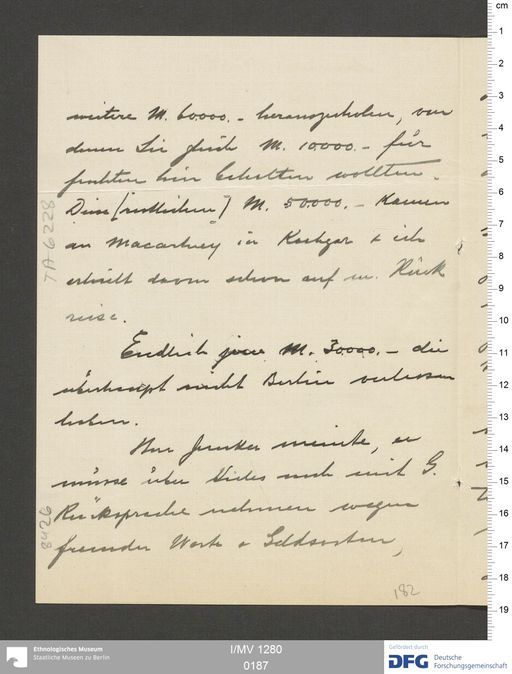 weitere M. 60000.- herauszuholen, von
denen Sie gleich M. 10000.- für
hin behalten wollten.
Diese [restlichen] M. 50000.- kamen
an Macartney in Kashgar & ich
erhielt davon schon auf m. Rück
reise.
Endlich jene M. 30000.- die
überhaupt nicht Berlin verlassen
haben.
Herr meinte, er
müsse über Vieles noch mit G.
Rücksprache nehmen wegen
fremder Worte & Geldsorten,
182
7A 6228
8426
cm
1
2
3
4
5
6
7
8
9
10
11
12
13
14
15
16
17
18
19
Ethnologisches Museum
Staatliche Museen zu Berlin
I/MV 1280
0187
Gefördert durch
DFG
Deutsche
Forschungsgemeinschaft